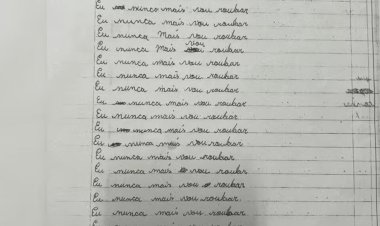 Eu nunca mais vou roubar
Eu nunca mais vou roubar
Eu nunca Mais vou roubar
Eu nunca Mais vou roubar
Eu nunca mais vou roubar
Eu nunca mais vou roubar
Eu nunca mais vou roubar
Eu nunca mais vou roubar
Eu nunca mais vou roubar
Eu nunca mais vou roubar
Eu nunca mais vou roubar
Eu nunca mais vou roubar
Eu nunca mais vou roubar
Eu nunca mais vou roubar
Eu nunca mais vou roubar
Eu nunca mais vou roubar